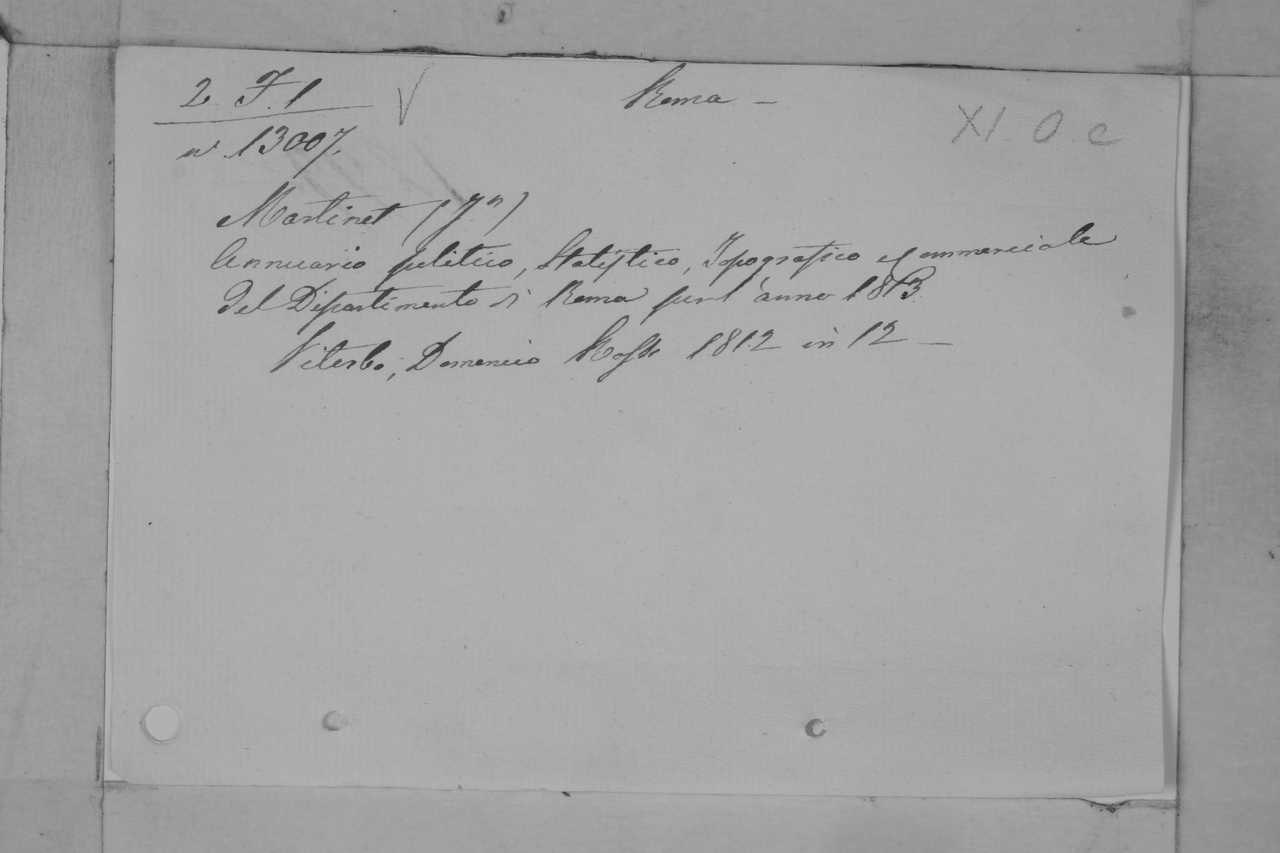 2. F. 1 √ Roma –
XI. O. c
n. 13007.
Martinet (J.n)
Annuario politico, Statistico, Topografico e Commerciale
del Dipartimento di Roma per l'anno 1813.
Viterbo, Domenico Rossi 1812 in 12 –